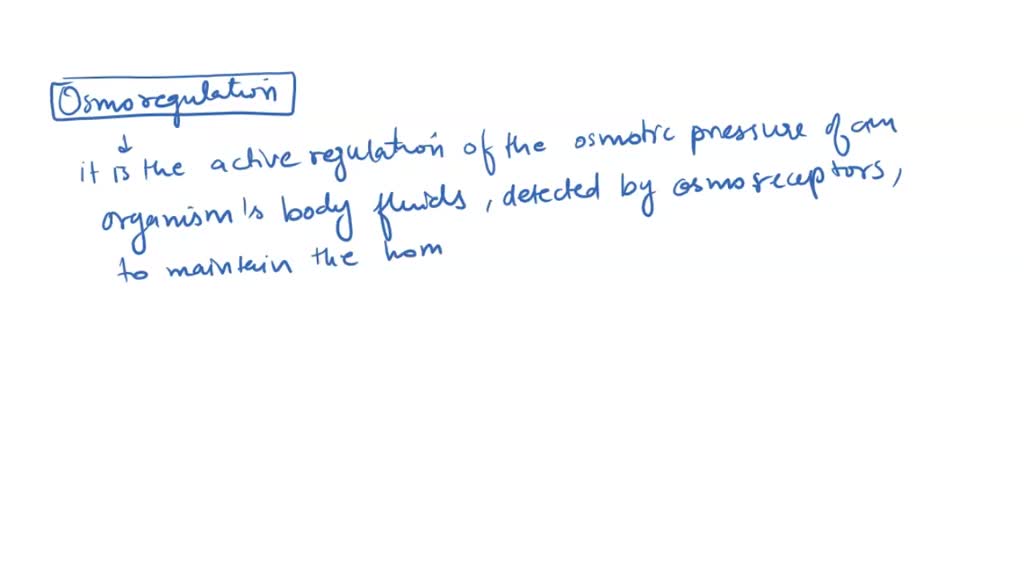 Osmoregulation
it is the active regulation of the osmotic pressure of an
organism's body fluids, detected by osmoreceptors,
to maintain the hom